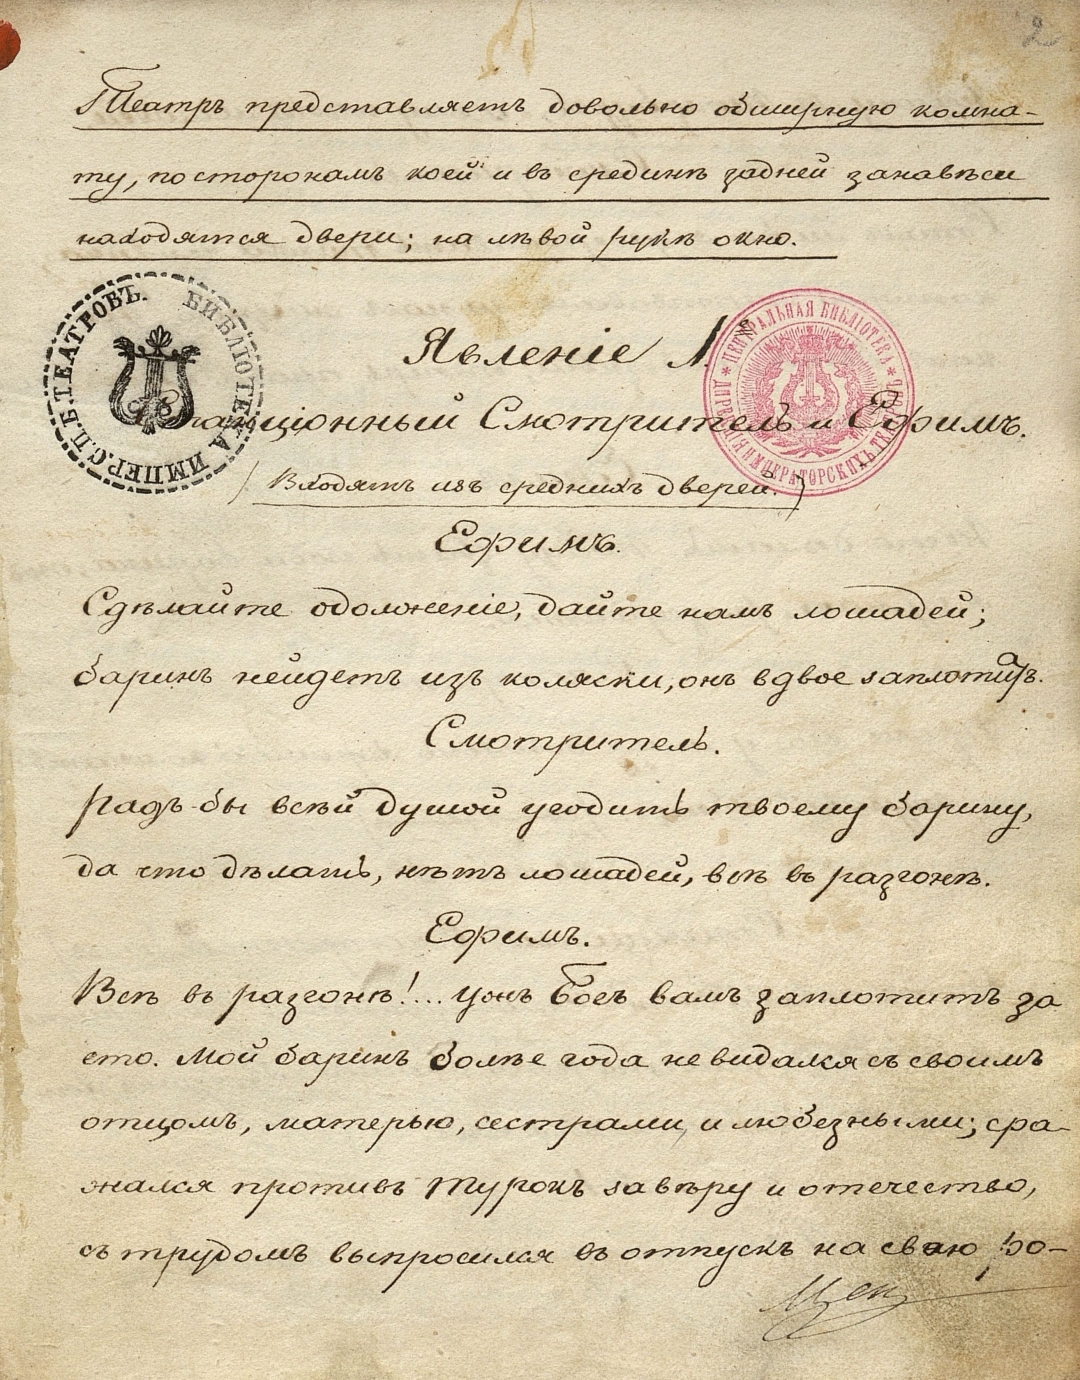 2
Театръ представляетъ довольно обширную комна-
ту, по сторонамъ коей и въ срединѣ задней занавѣси
находятся двери; на лѣвой рукѣ окно.
БИБЛІОТЕКА ИМПЕР. С.П.Б. ТЕАТРОВЪ.
ЦЕНТРАЛЬНАЯ БИБЛІОТЕКА * ИМПЕРАТОРСКИХЪ ТЕАТРОВЪ *
Явленіе 1.
Станціонный Смотритель и Ефимъ.
(Входятъ изъ среднихъ дверей.)
Ефимъ.
Сдѣлайте одолженіе, дайте намъ лошадей;
баринъ нейдетъ изъ коляски, онъ вдвое заплатитъ.
Смотритель.
Радъ бы всѣй душой угодить твоему барину,
да что дѣлать, нѣтъ лошадей, всѣ въ разгонѣ.
Ефимъ.
Всѣ въ разгонѣ!... ужъ Богъ вамъ заплотитъ за
это. Мой баринъ болѣе года не видался съ своимъ
отцомъ, матерью, сестрами, и любезными; сра-
жался противъ Турокъ за вѣру и отечество,
съ трудомъ выпросился въ отпускъ на свою ро-